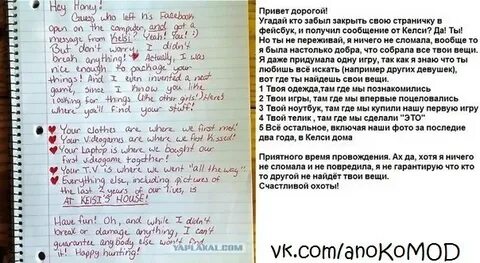 Hey Honey!
Guess who left his Facebook
open on the computer, and got a
message from Kelsi? Yeah! You! :)
But don't worry, I didn't
break anything! ♥ Actually, I was
nice enough to package your
things! And I even invented a neat
game, since I know you like
looking for things (like other girls). Here's
where you'll find your stuff!
♥ Your clothes are where we first met!
♥ Your videogames are where we first kissed!
♥ Your Laptop is where we bought our
first videogame together!
♥ Your T.V is where we went "all the way."
♥ Everything else, including pictures of
the last 2 years of our lives, is
AT KELSI'S HOUSE!
Have fun! Oh, and while I didn't
break or damage anything, I can't
guarantee anybody else won't find
it! Happy hunting!
YAPLAKAL.COM
Привет дорогой!
Угадай кто забыл закрыть свою страничку в
фейсбук, и получил сообщение от Келси? Да! Ты!
Но ты не переживай, я ничего не сломала, вообще то
я была настолько добра, что собрала все твои вещи.
Я даже придумала одну игру, так как я знаю что ты
любишь всё искать (например других девушек),
вот где ты найдешь свои вещи.
1 Твоя одежда,там где мы познакомились
2 Твои игры, там где мы впервые поцеловались
3 Твой ноутбук, там где мы купили нашу первую игру
4 Твой телик , там где мы сделали "ЭТО"
5 Всё остальное, включая наши фото за последние
два года, в Келси дома
Приятного время провождения. Ах да, хотя я ничего
не сломала и не повредила, я не гарантирую что кто
то другой не найдёт твои вещи.
Счастливой охоты!
vk.com/anoKoMOD